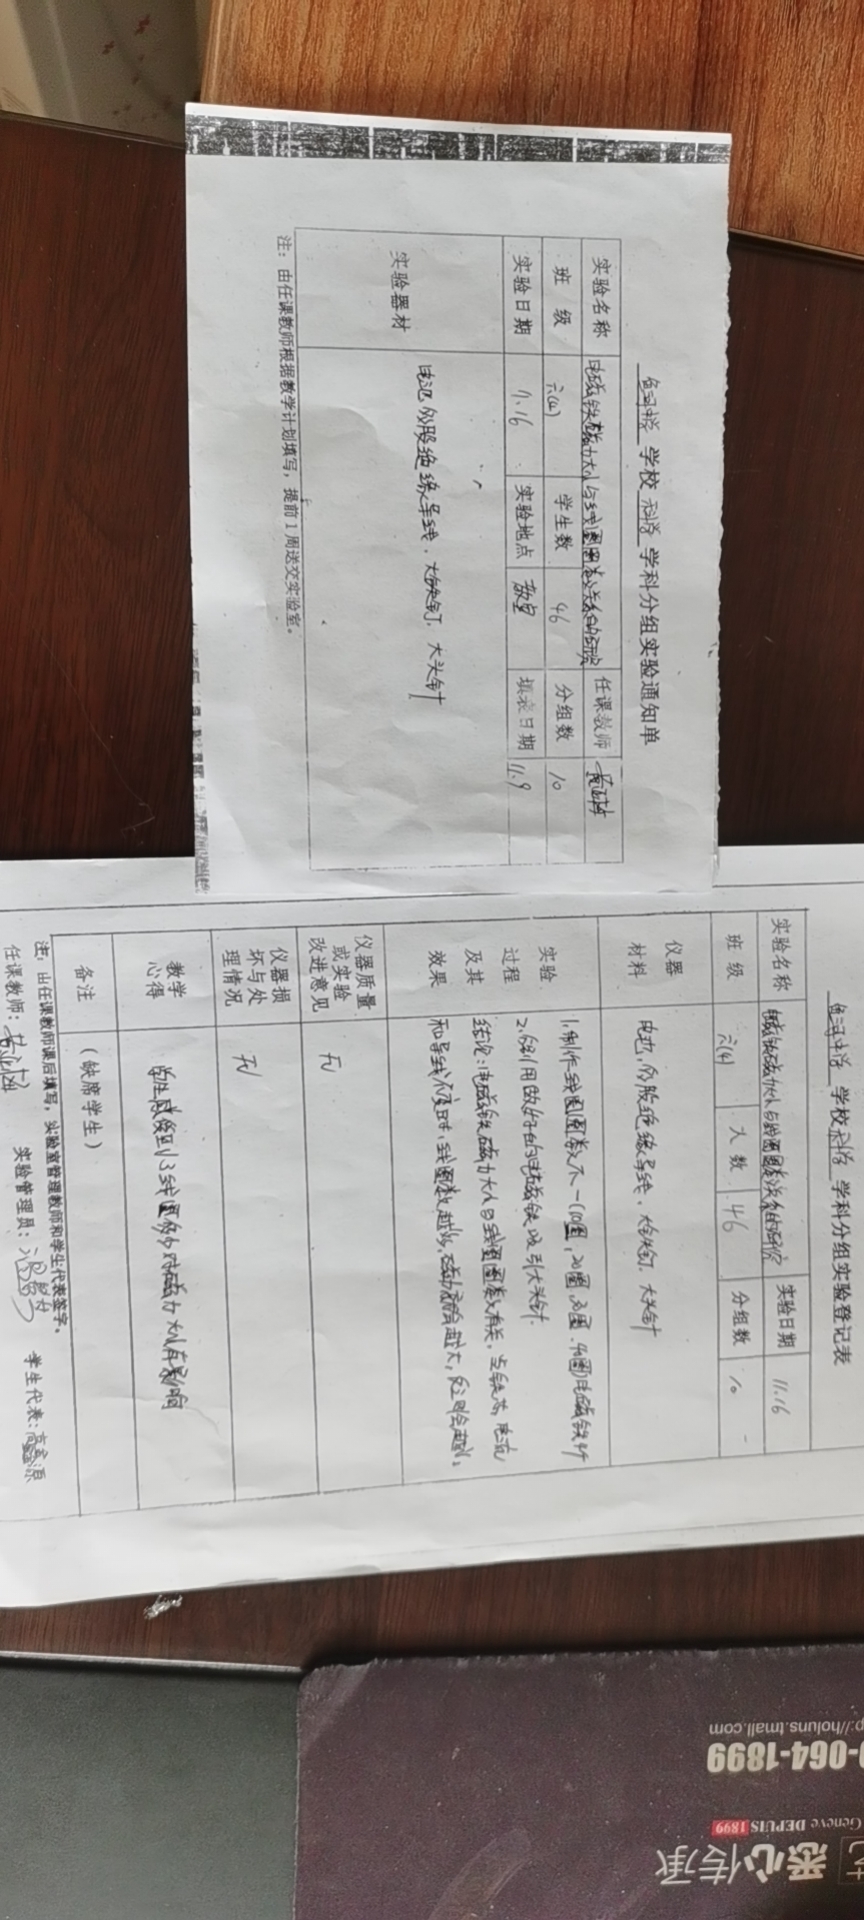 学校 科学 学科分组实验通知单
实验名称 电磁铁磁力大小与线圈圈数关系的研究 任课教师
班 级 六(4) 学生数 46 分组数 10
实验日期 11.16 实验地点 教室 填表日期 11.9
实验器材 电池、多股绝缘导线、大铁钉、大头针
注：由任课教师根据教学计划填写，提前1周送交实验室。
学校 科学 学科分组实验登记表
实验名称 电磁铁磁力大小与线圈圈数关系的研究 实验日期 11.16
班 级 六(4) 人 数 46 分组数 10
仪器
材料
电池，多股绝缘导线、大铁钉、大头针
实验
过程
及其
效果
1.制作线圈圈数不一(10圈，20圈，30圈、40圈)电磁铁4个
2.分别用做好的电磁铁吸引大头针.
结论:电磁铁磁力大小与线圈圈数有关，当铁芯，电流
和导线不变时，线圈数越多，磁力就会越大，反之则会越小。
仪器质量
或实验
改进意见
无
仪器损
坏与处
理情况
无
教学
心得
学生 线圈多少对磁力大小有影响
备注 (缺席学生)
注：由任课教师课后填写，实验室管理教师和学生代表签字。
任课教师： 实验管理员： 学生代表：
p://holuns.tmall.com
0-064-1899
Geneve DEPUIS 1899
艺 悉心传承